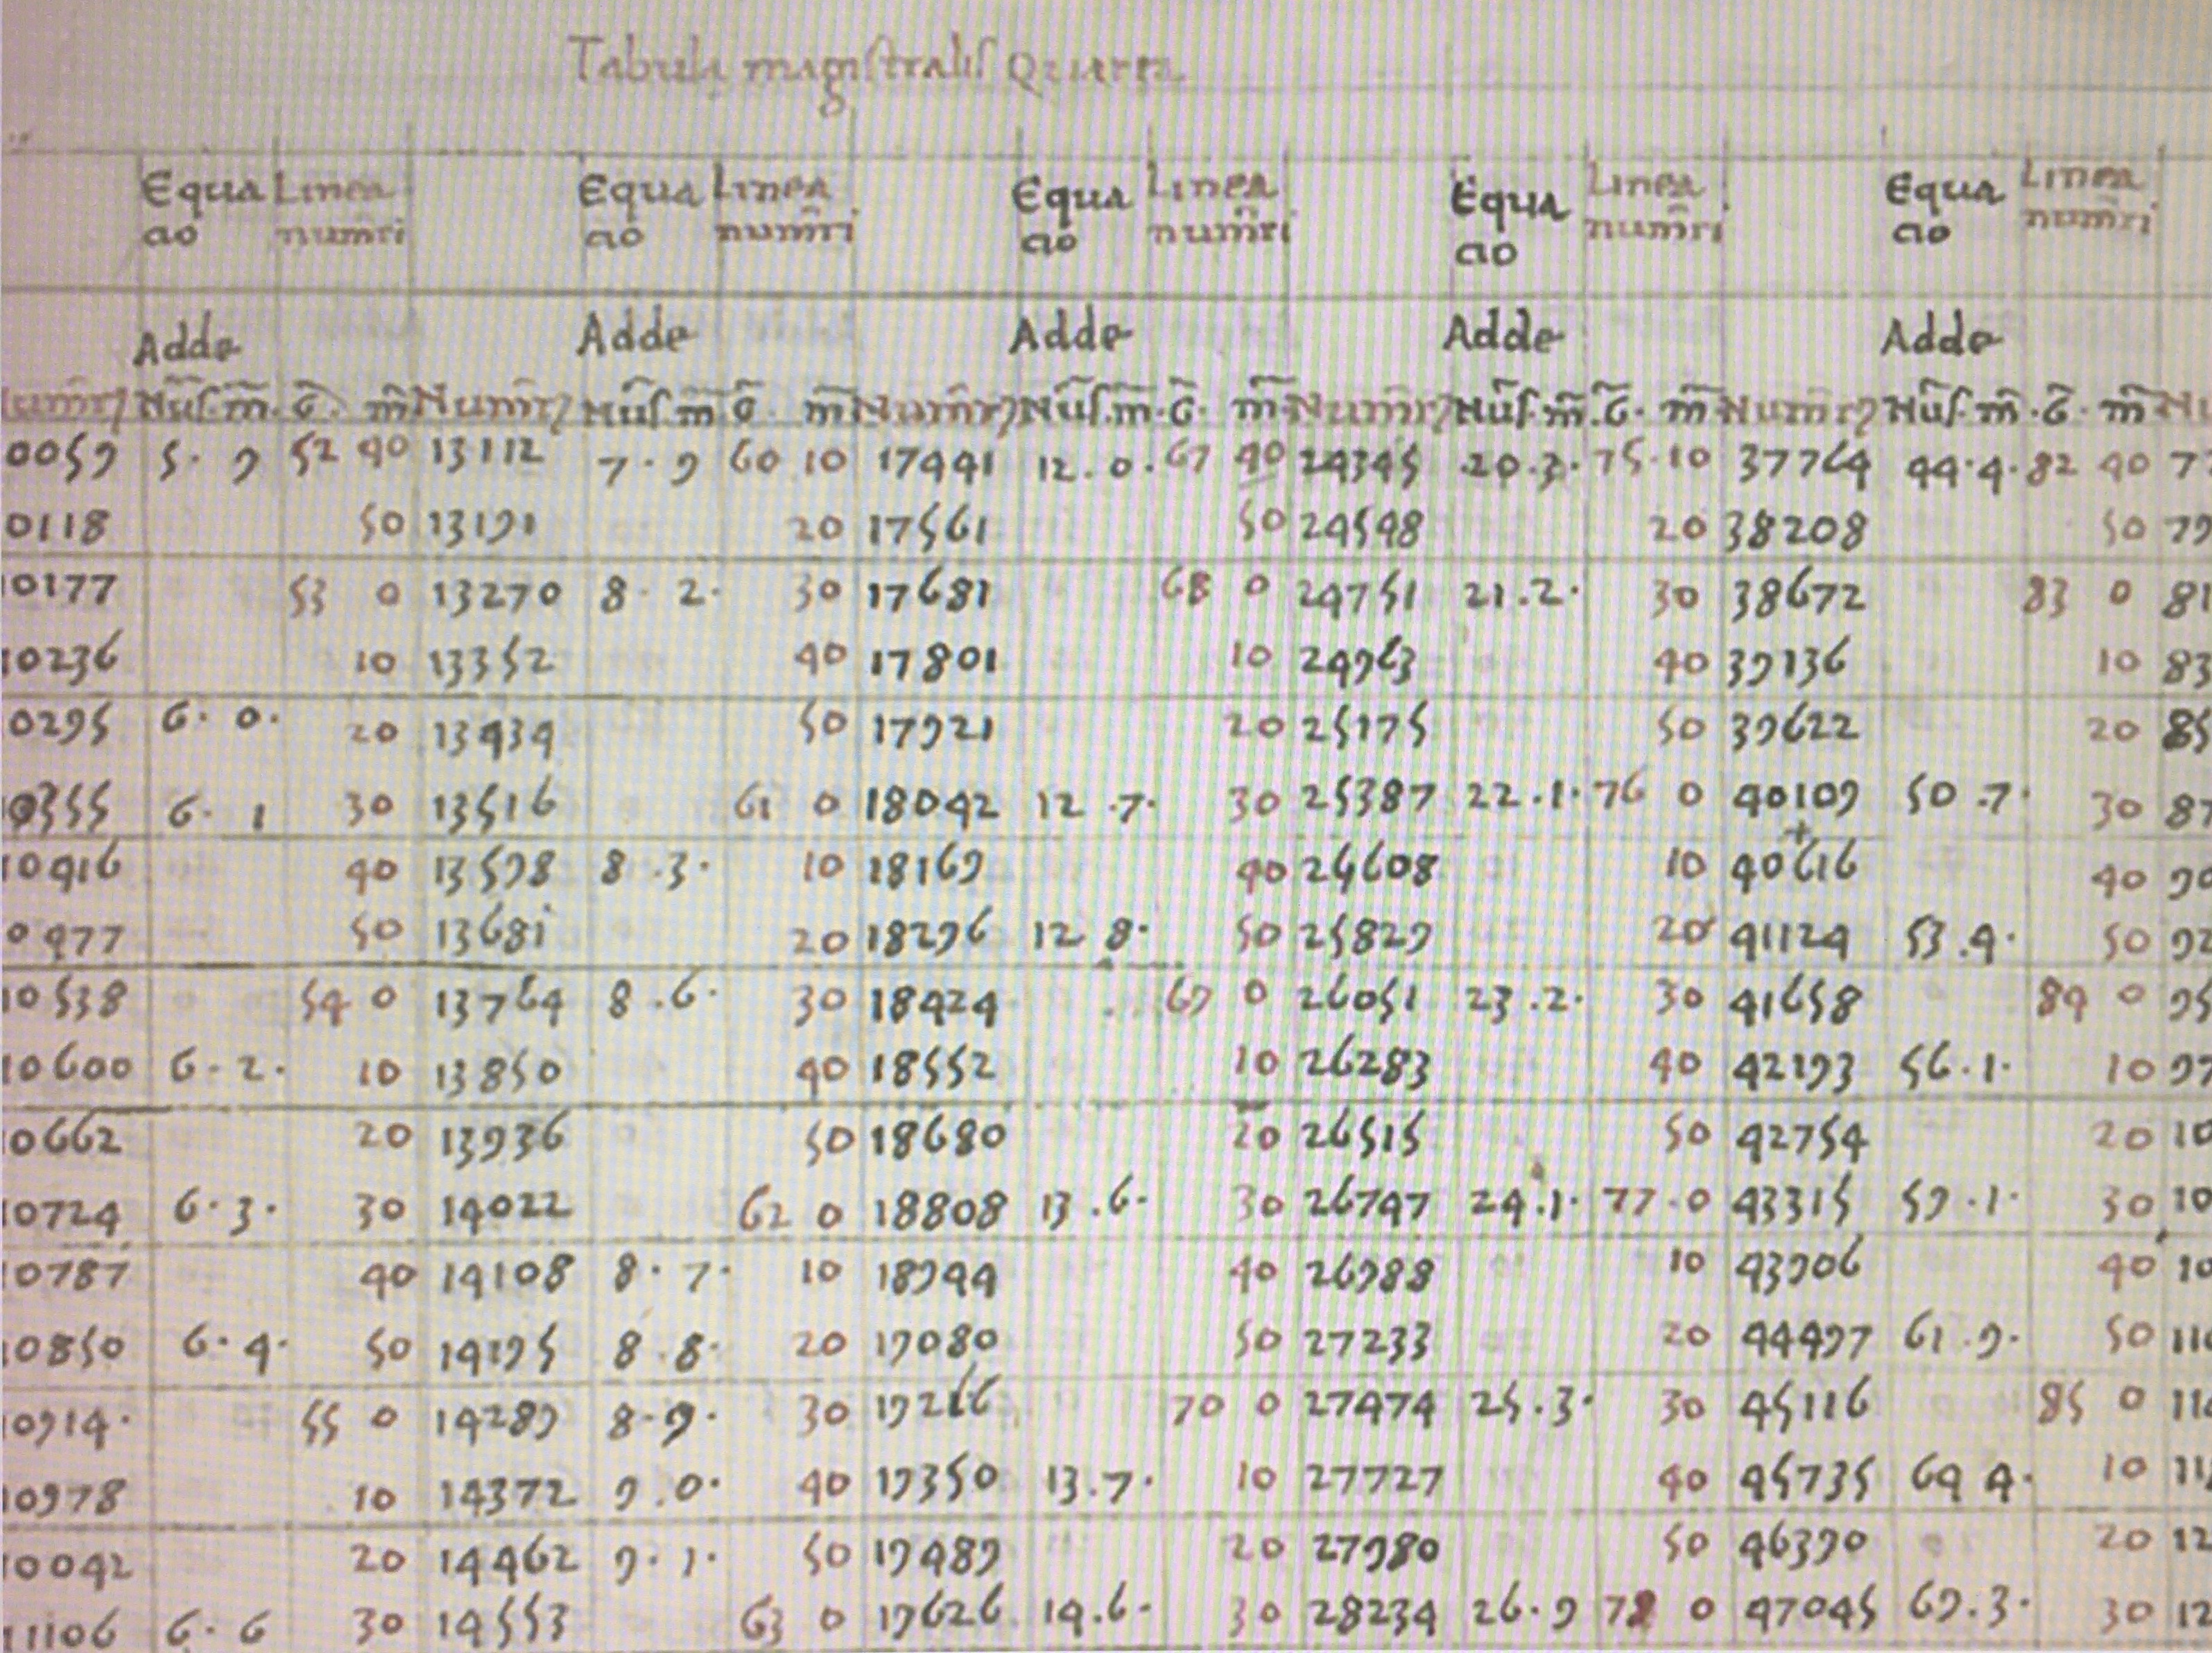 Tabula magistralis Quarta
Equa Linea Equa Linea Equa Linea Equa Linea Equa Linea
cio num̃ri cio num̃ri cio num̃ri cio num̃ri cio num̃ri
Adde Adde Adde Adde Adde
0059 5. 9 52 40 13112 7. 9 60 10 17441 12.0. 67 40 24345 20.3. 75.10 37764 44.4. 82 40 7
0118 50 13191 20 17561 50 24548 20 38208 50 79
10177 53 0 13270 8. 2. 30 17681 68 0 24751 21.2. 30 38672 83 0 81
10236 10 13352 40 17801 10 24963 40 39136 10 83
0295 6. 0. 20 13434 50 17921 20 25175 50 39622 20 85
10355 6. 1 30 13516 61 0 18042 12.7. 30 25387 22.1. 76 0 40109 50.7. 30 87
10416 40 13598 8.3. 10 18169 40 25608 10 40616 40 90
0477 50 13681 20 18296 12 8. 50 25829 20 41124 53.4. 50 92
10538 54 0 13764 8.6. 30 18424 69 0 26051 23.2. 30 41658 84 0 95
10600 6.2. 10 13850 40 18552 10 26283 40 42193 56.1. 10 97
10662 20 13936 50 18680 20 26515 50 42754 20 10
10724 6.3. 30 14022 62 0 18808 13.6. 30 26747 24.1. 77.0 43315 59.1. 30 10
10787 40 14108 8.7. 10 18944 40 26988 10 43906 40 10
10850 6.4. 50 14195 8.8. 20 19080 50 27233 20 44497 61.9. 50 11
10914. 55 0 14289 8.9. 30 19216 70 0 27474 25.3. 30 45116 85 0 11
10978 10 14372 9.0. 40 19350 13.7. 10 27727 40 45735 64 4. 10 11
10042 20 14462 9.1. 50 19489 20 27980 50 46390 20 12
11106 6.6 30 14553 63 0 19626 14.6. 30 28234 26.9 78 0 47045 69.3. 30 12